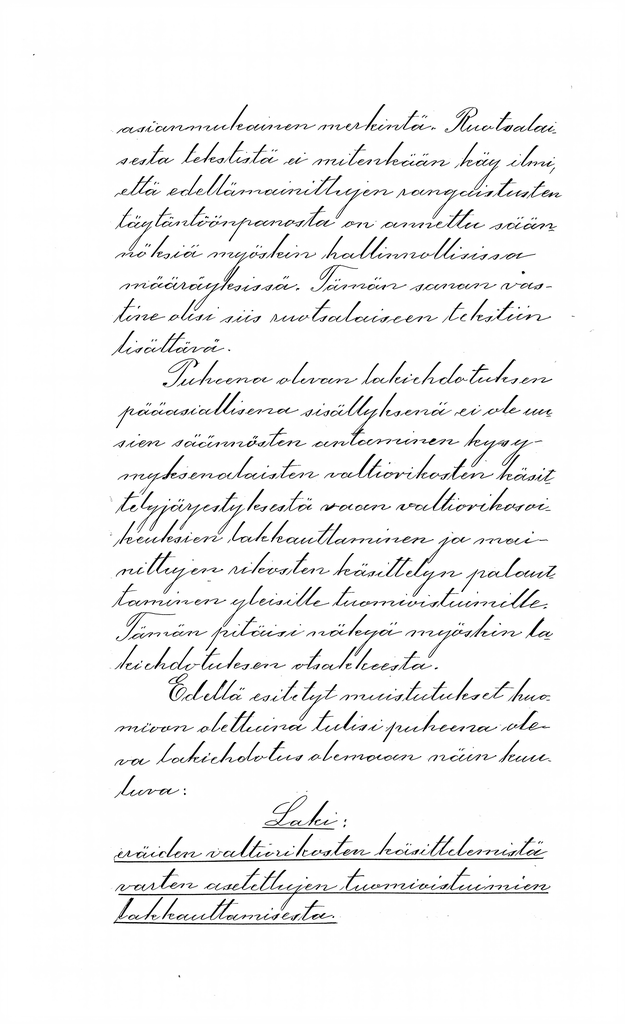 asianmukainen merkintä. Ruotsalai-
sesta tekstistä ei mitenkään käy ilmi,
että edellämainittujen rangaistusten
täytäntöönpanosta on annettu sään-
nöksiä myöskin hallinnollisissa
määräyksissä. Tämän sanan vas-
tine olisi siis ruotsalaiseen tekstiin
lisättävä.
Puheena olevan lakiehdotuksen
pääasiallisena sisällyksenä ei ole uu-
sien säännösten antaminen kysy-
myksenalaisten valtiorikosten käsit-
telyjärjestyksestä vaan valtiorikosoi-
keuksien lakkauttaminen ja mai-
nittujen rikosten käsittelyn palaut-
taminen yleisille tuomioistuimille.
Tämän pitäisi näkyä myöskin la-
kiehdotuksen otsakkeesta.
Edellä esitetyt muistutukset huo-
mioon otettuina tulisi puheena ole-
va lakiehdotus olemaan näin kuu-
luva:
Laki:
eräiden valtiorikosten käsittelemistä
varten asetettujen tuomioistuimien
lakkauttamisesta.